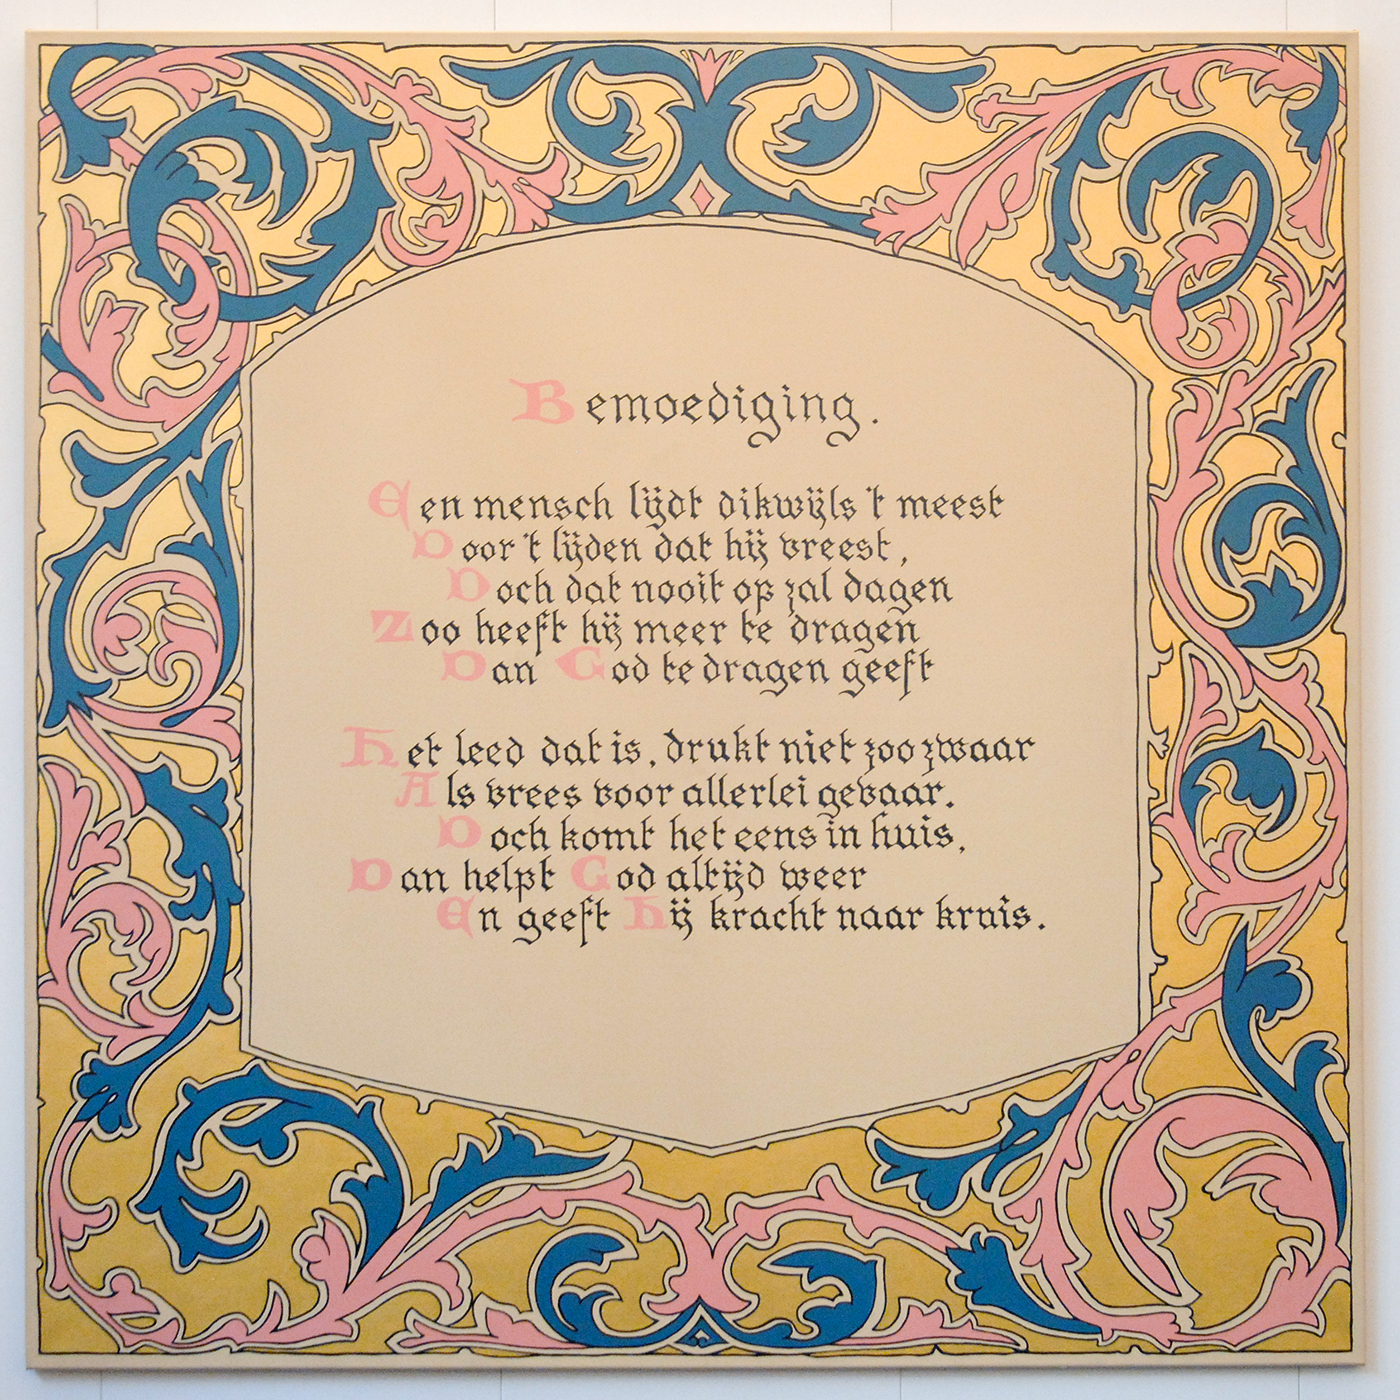 Bemoediging.
Een mensch lijdt dikwijls 't meest
Door 't lijden dat hij vreest,
Doch dat nooit op zal dagen
Zoo heeft hij meer te dragen
Dan God te dragen geeft
Het leed dat is, drukt niet zoo zwaar
Als vrees voor allerlei gevaar.
Doch komt het eens in huis,
Dan helpt God altijd weer
En geeft Hij kracht naar kruis.